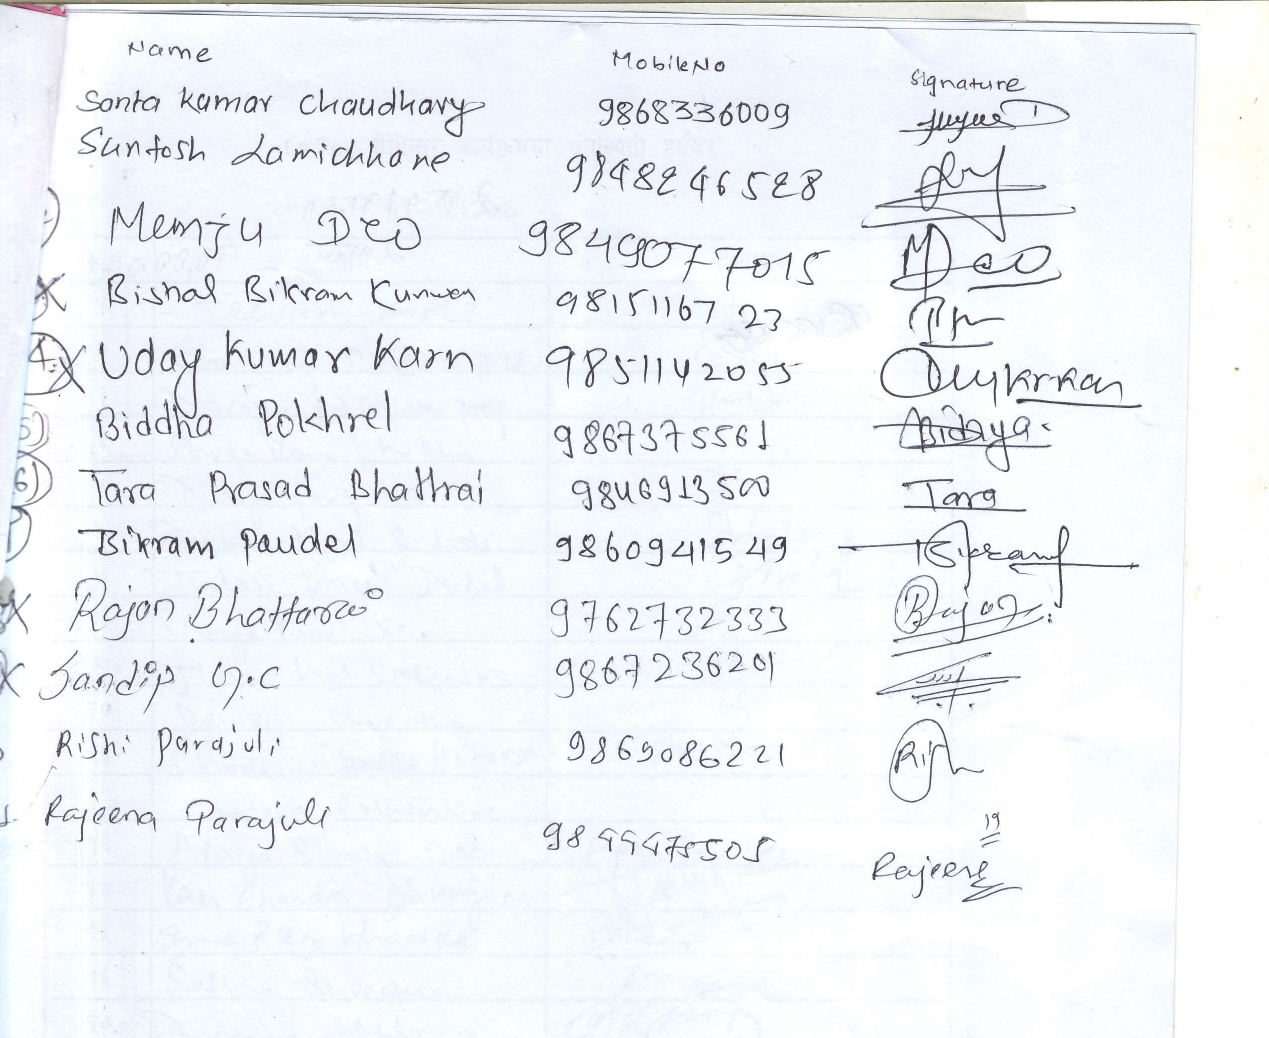 Name Mobile No Signature
Santa Kumar Chaudhary 9868336009
Santosh Lamichhane 9848246528
Memju Deo 9849077015 MDeo
Bishal Bikram Kunwar 9815116723
4. Uday Kumar Karn 9851142055
5) Biddha Pokhrel 9867375561 Bidaya
6) Tara Prasad Bhattrai 9846913500 Tara
Bikram Paudel 9860941549 Bikram
Rajan Bhattarai 9762732333 Rajan
Sandip G.C 9867236201
Rishi Parajuli 9869086221 Rish
Rajeena Parajuli 19
Rajeena